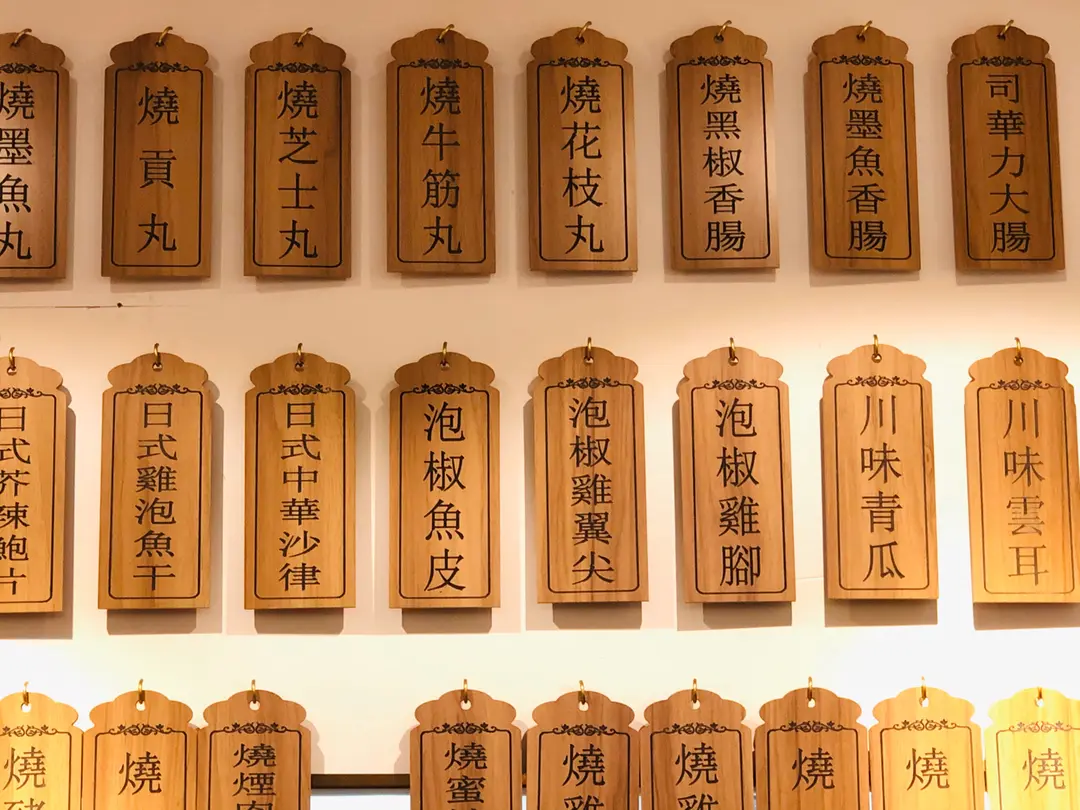 燒墨魚丸
燒貢丸
燒芝士丸
燒牛筋丸
燒花枝丸
燒黑椒香腸
燒墨魚香腸
司華力大腸
日式芥辣鮑片
日式雞泡魚干
日式中華沙律
泡椒魚皮
泡椒雞翼尖
泡椒雞腳
川味青瓜
川味雲耳
燒
燒
燒煙
燒蜜
燒雞
燒雞
燒
燒
燒